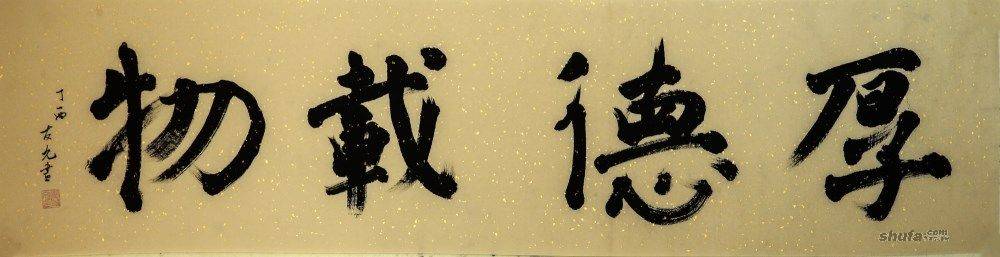 厚德載物
丁酉
友光書
shufa.com